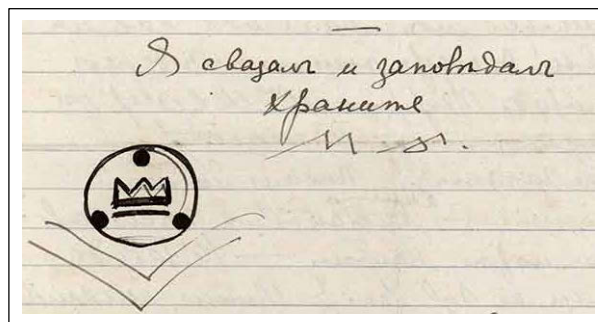 Я сказалъ и заповѣдалъ
храните
М. А.